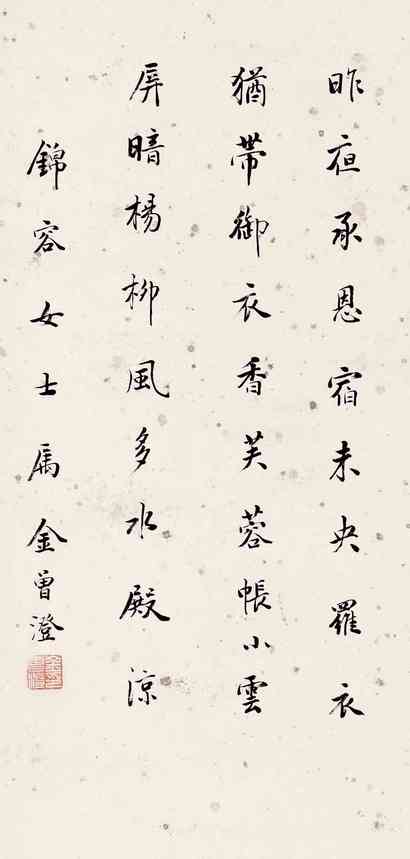 昨夜承恩宿未央羅衣
猶帶御衣香芙蓉帳小雲
屏暗楊柳風多水殿涼
錦容女士属金曾澄